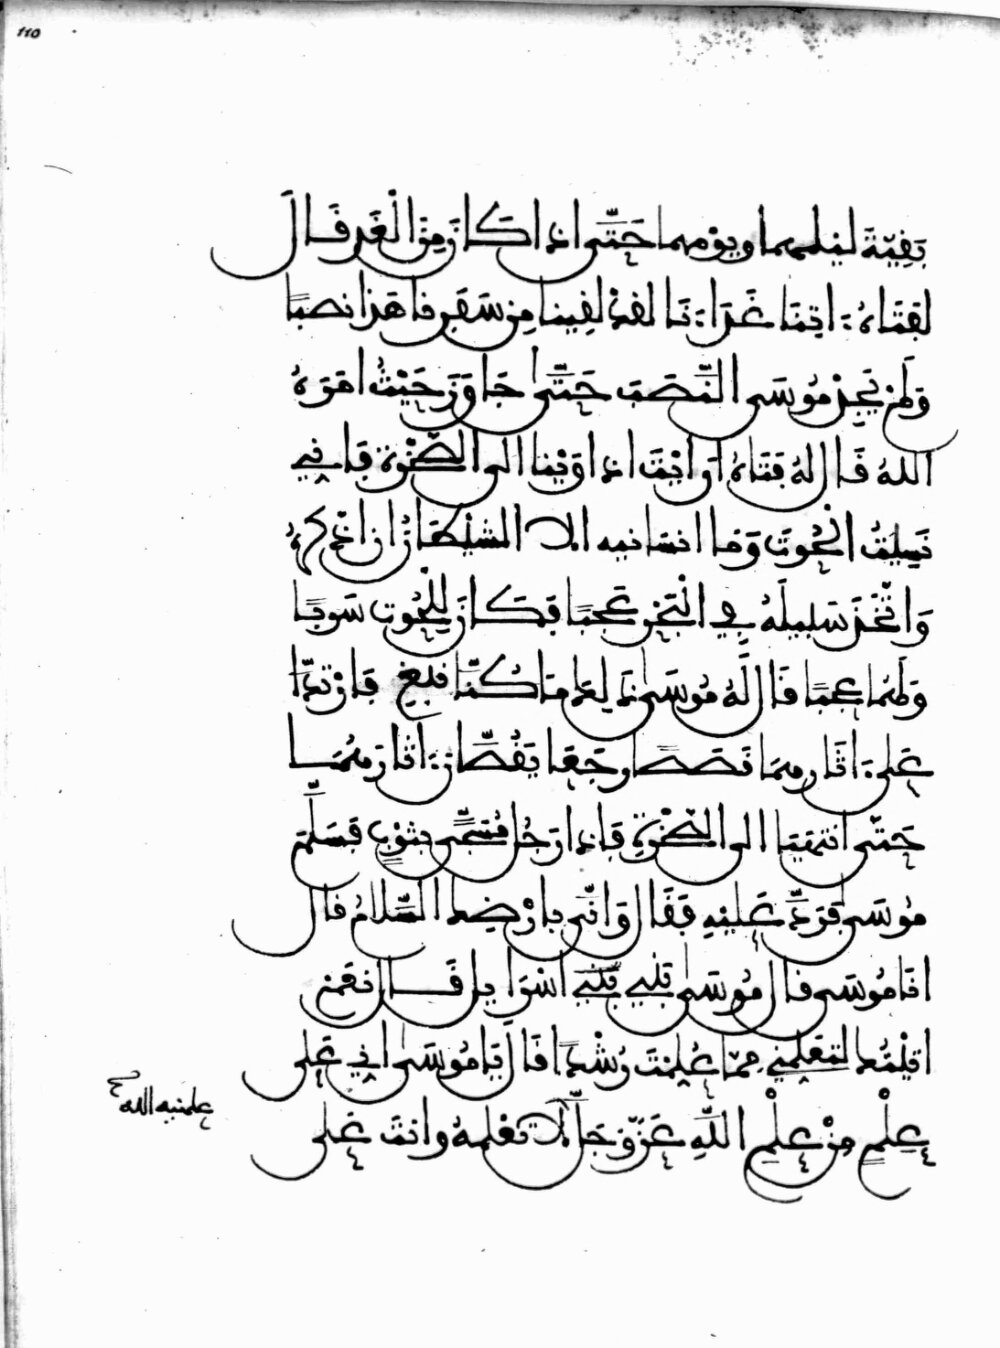 110
بَقِيَّةَ ليلتهما ويوْمهما حَتَّى اذا كَانَ مِنَ الْغَدِ قَالَ
لفتَاهُ ءاتِنَا غَدَاءَنَا لقدْ لقِينا مِن سَفَرِنا هَذا نصبًا
وَلَمْ يَجِدْ مُوسَى النَّصَبَ حَتَّى جَاوَزَ حَيْثُ امَرَهُ
اللهُ قَال لهُ فتَاهُ ارَايْتَ اذ اوَيْنا الى الصَّخْرَةِ فَإنِّي
نَسِيتُ الْحُوتَ وَمَا انسَانيه الا الشيْطَانُ ان اذْكرَهُ
وَاتَّخَذَ سَبيلَهُ فِي الْبَحْرِ عَجَبًا فَكَانَ لِلْحُوتِ سَرَبًا
وَلَهُمَا عجبًا قَالَ لَهُ مُوسَى ذَلِكَ مَا كُنَّا نَبْغِ فَارْتدَّا
عَلَى ءاثَارهِمَا قَصَصًا رجَعَا يَقُصَّانِ ءاثَارَهُمَا
حَتَّى انتهَيَا الى الصَّخْرَةِ فَإذا رَجُل مُسَجًّى بثَوْبٍ فَسَلَّمَ
مُوسَى فَرَدَّ عَلَيْهِ فَقَال وَانَّى بارْضِكَ السَّلامُ قال
انا مُوسَى قال مُوسَى بَنِي بَنِي اسْرَايل قَال نعَمْ
اتيْتُكَ لتعَلِّمَنِي مِمَّا عُلِّمْتَ رُشْدًا قَال يَا مُوسَى إنِّي عَلَى
عِلْمٍ مِنْ عِلْمِ اللَّهِ عَزَّ وَجَلَّ لا تَعْلمُهُ وانتَ عَلَى
علمنيه الله
صح